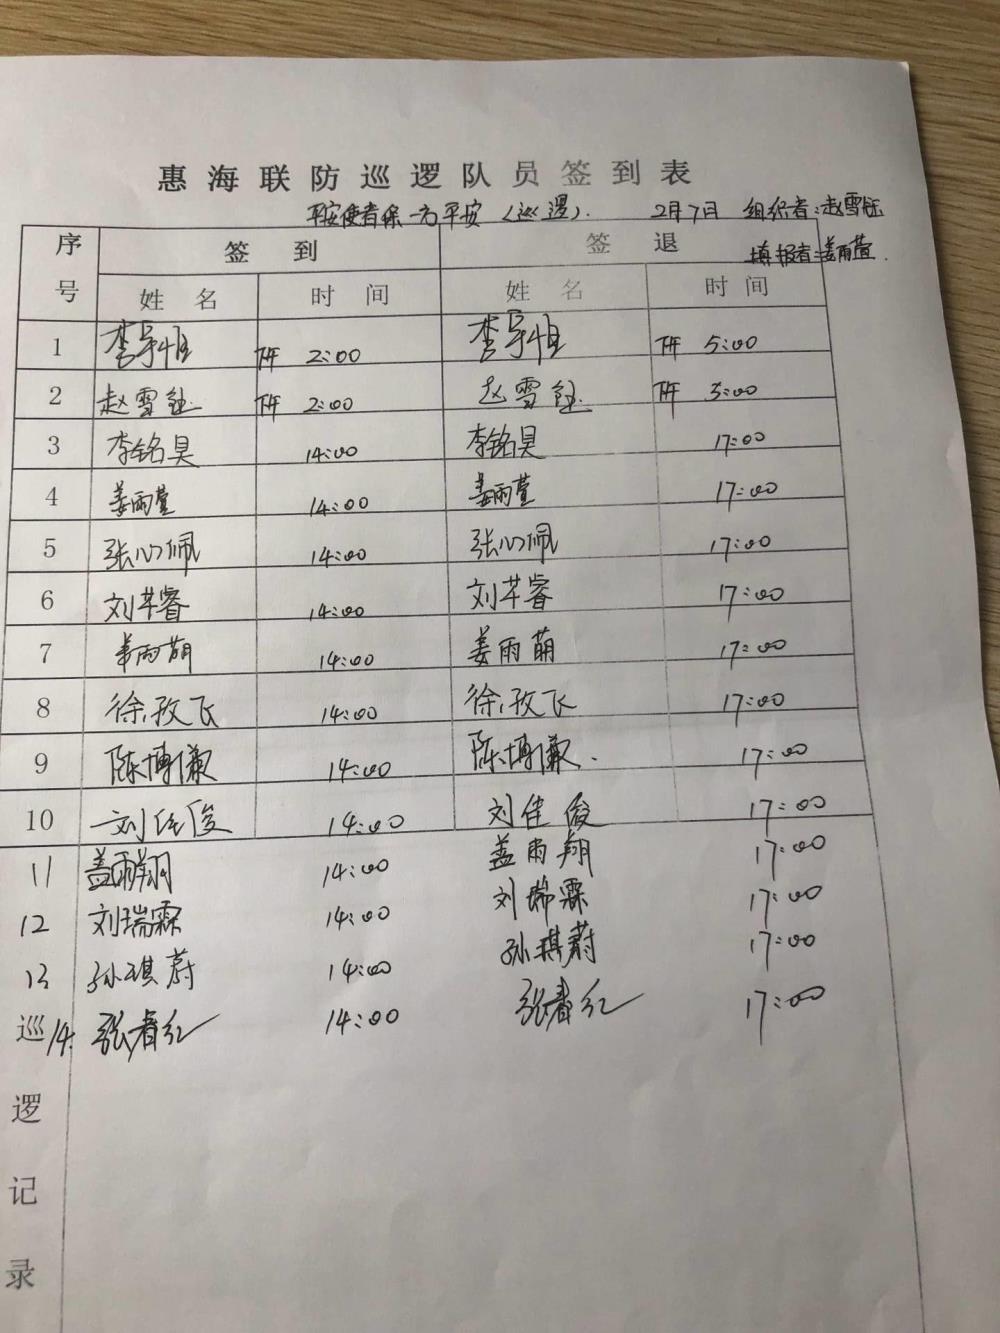 惠海联防巡逻队员签到表
平安使者保一方平安（巡逻）. 2月7日 组织者:赵雪钰
填报者:姜雨萱.
序号 签到 签退
姓名 时间 姓名 时间
1 李宇恒 下午 2:00 李宇恒 下午 5:00
2 赵雪钰 下午 2:00 赵雪钰 下午 5:00
3 李铭昊 14:00 李铭昊 17:00
4 姜雨萱 14:00 姜雨萱 17:00
5 张心佩 14:00 张心佩 17:00
6 刘芊睿 14:00 刘芊睿 17:00
7 姜雨萌 14:00 姜雨萌 17:00
8 徐孜飞 14:00 徐孜飞 17:00
9 陈博谦 14:00 陈博谦. 17:00
10 刘佳俊 14:00 刘佳俊 17:00
11 盖雨翔 14:00 盖雨翔 17:00
12 刘瑞霖 14:00 刘瑞霖 17:00
13 孙琪蔚 14:00 孙琪蔚 17:00
14. 张春红 14:00 张春红 17:00
巡逻记录